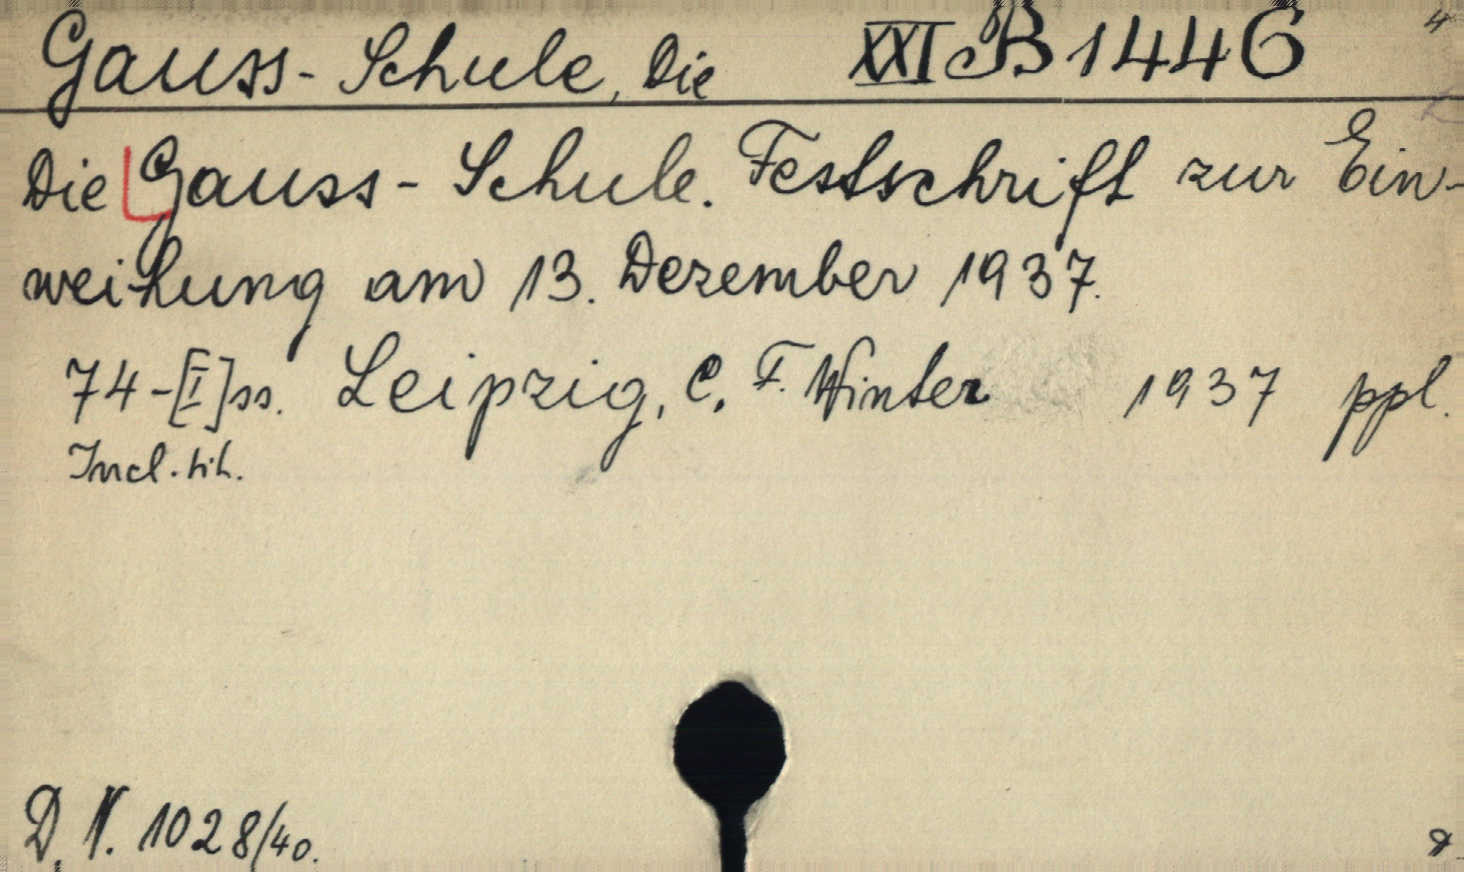 Gauss-Schule, Die XXI B 1446 4
Die Gauss-Schule. Festschrift zur Ein-
weihung am 13. Dezember 1937.
74-[I]ss. Leipzig, C. F. Winter 1937 ppl.
Incl. tit.
D. N. 1028/40.